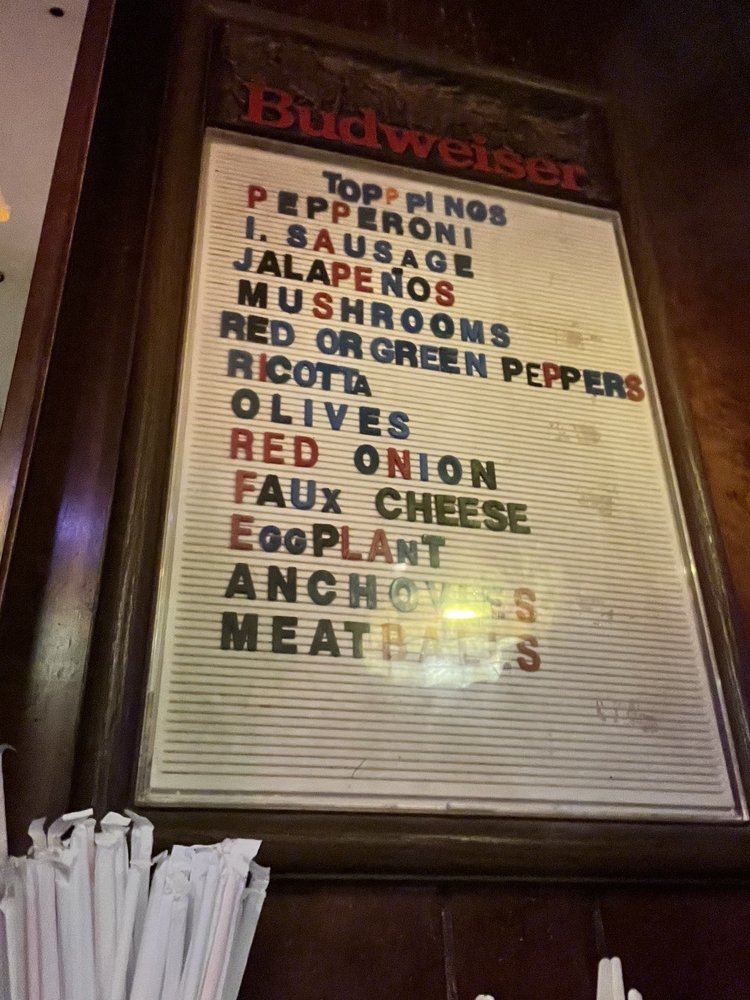 Budweiser
TOPPPINGS
PEPPERONI
I. SAUSAGE
JALAPEÑOS
MUSHROOMS
RED OR GREEN PEPPERS
RICOTTA
OLIVES
RED ONION
FAUX CHEESE
EGGPLANT
ANCHOVIES
MEATBALLS